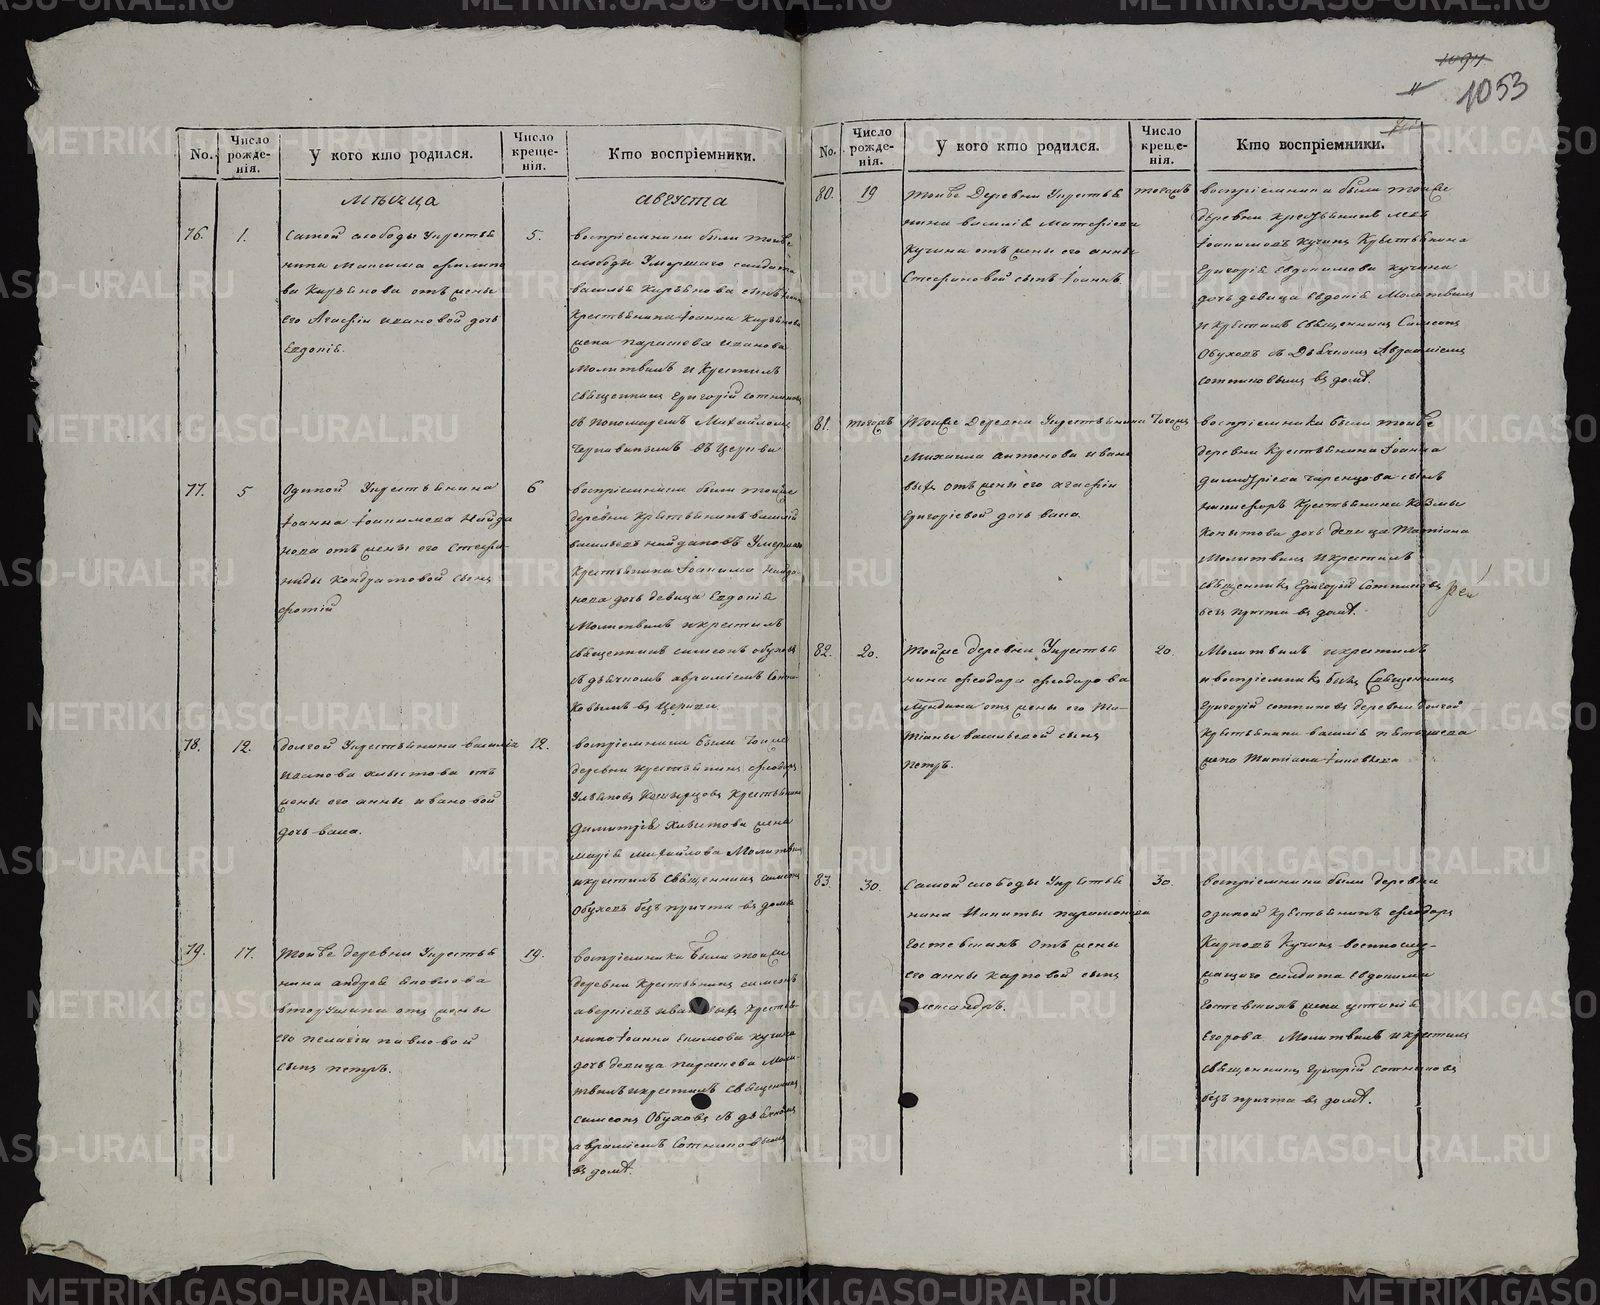 1053
No.
Число рожденія.
У кого кто родился.
Число крещенія.
Кто воспріемники.
мѣсяца
августа
76.
1.
Самой слободы Укрестья
нина Максима Филипо
ва Кирьянова отъ жены
его Агафіи ивановой дочь
Евдокіѣ.
5.
воспріемники были тоиже
слободы Умершаго салдата
василья Кирьянова сынъ
Крестьянина Іоанна Кирьянова
жена парасчева иванова
Молитвилъ и Крестилъ
священникъ Григорій сотниковъ
съ пономаремъ Михайломъ
въ церкви
77.
5
Озиной Укрестьянина
Іоанна Іоакимова Найда
нова отъ жены его Стефа
ниды Кондратовой сынъ
фотій
6
воспріемники были тоиже
деревни Крестьянинъ василій
васильевъ найдановъ Умершаго
Крестьянина Іоакима найда
нова дочь девица Евдокіѣ
Молитвилъ икрестилъ
священникъ симеонъ обуховъ
съ дьячкомъ авраміемъ Сотни
ковымъ въ церкви
78.
12.
долгой Укрестьянина василіа
иванова хлыстова отъ
жены его анны ивановой
дочь васа.
12.
воспріемники были тоиже
деревни крестьянинъ феодоръ
Крестьянина
Димитріѣ Хлыстова жена
маріѣ михайлова Молитвилъ
икрестилъ священникъ симеонъ
Обуховъ безъ причта въ доме
79.
17.
Тоиже деревни Укрестья
нина андрей павлова
отъ жены
его пелагіи павловой
сынъ петръ.
19.
воспріемники были тоиже
деревни Крестьянинъ симеонъ
Кресть
нина Іоанна Екимова кучина
дочь девица парасчева Моли
твилъ икрестилъ священникъ
симеонъ Обуховъ съ дьячкомъ
авраміемъ Сотниковымъ
въ доме.
No.
Число рожденія.
У кого кто родился.
Число крещенія.
Кто воспріемники.
80.
19
Тоиже Деревни Укрестья
нина василіѣ Матфеева
Кучина отъ жены его анны
Стефановой сынъ Іоаннъ.
тогожъ
воспріемники были тоиже
деревни крестьянинъ левъ
Іоакимовъ Кучинъ Крестьянина
Григоріѣ Евдокимова кучина
дочь девица Евдокіѣ Молитвилъ
и крестилъ священникъ Симеонъ
Обуховъ съ Дьячкомъ Авраміемъ
сотниковымъ въ доме.
81.
тогожъ
Тоиже деревни Укрестьянина
Михаила антонова ивано
выхъ отъ жены его агафіи
Григоріевой дочь васа.
Тогожъ
воспріемники были тоиже
деревни Крестьянина Іоанна
Димитріева сынъ
никифоръ Крестьянина Козмы
Копытова дочь девица Татіана
Молитвилъ икрестилъ
священникъ Григорій Сотниковъ
безъ причта въ доме.
82.
20.
Тоиже деревни Укрестья
нина феодора феодорова
отъ жены его Та
тіаны васильевой сынъ
петръ.
20.
Молитвилъ икрестилъ
ивоспріемникъ былъ Священникъ
Григорій сотниковъ деревни долгой
крестьянина василіѣ
жена Татіана
83.
30.
Самой слободы Укрестья
нина Никиты парамонова
Гостевскихъ отъ жены
его анны карповой сынъ
александръ.
30.
воспріемники были деревни
озиной крестьянинъ феодоръ
Карповъ Кучинъ военнослу
жащаго салдата Евдокима
Гостевскихъ жена устиніѣ
Егорова Молитвилъ икрестилъ
священникъ Григорій сотниковъ
безъ причта въ доме.